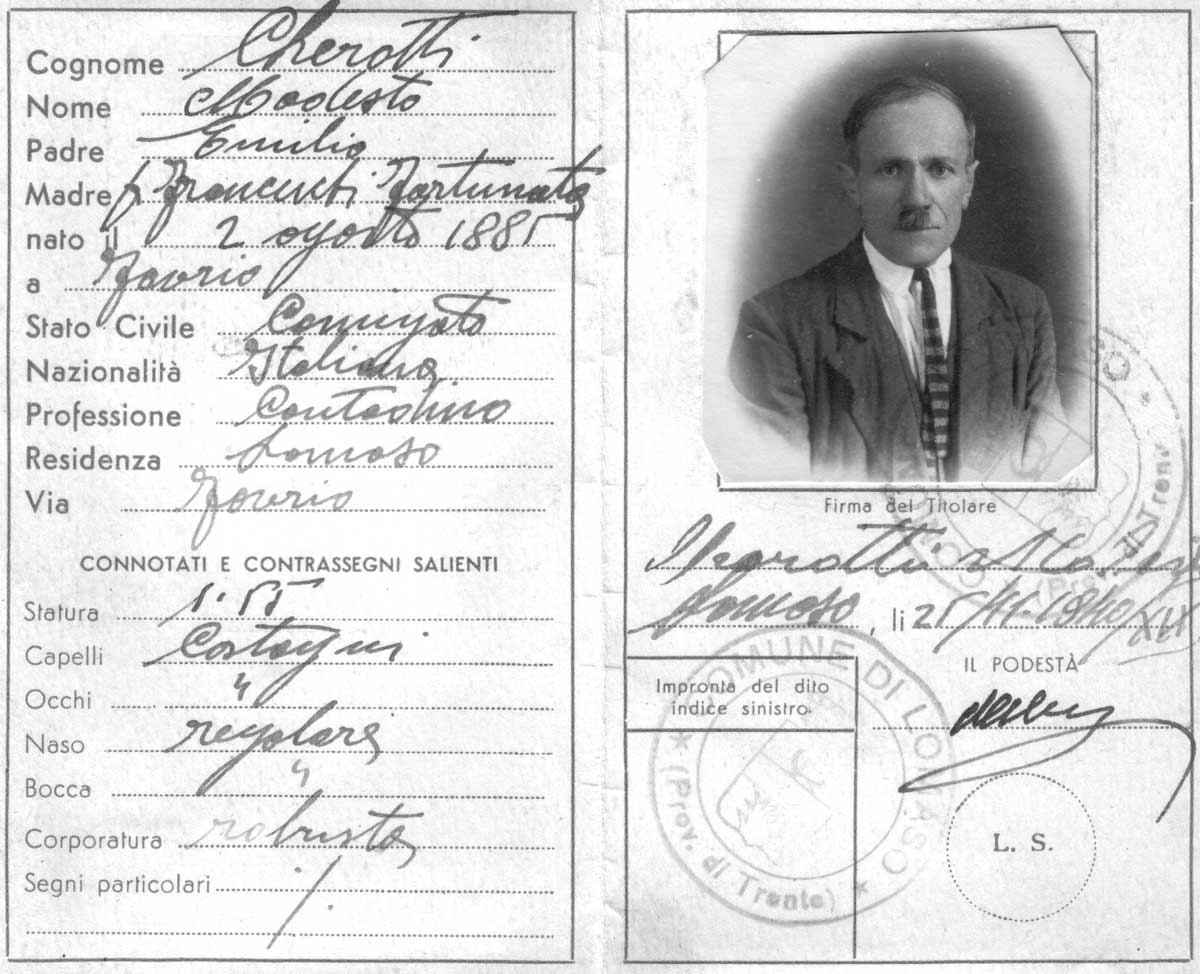 Cognome Cherotti
Nome Modesto
Padre Emilio
Madre Fortunata
nato il 2 agosto 1885
a Favrio
Stato Civile Coniugato
Nazionalità Italiana
Professione Contadino
Residenza Lomaso
Via Favrio
CONNOTATI E CONTRASSEGNI SALIENTI
Statura 1.55
Capelli Castagni
Occhi "
Naso regolare
Bocca "
Corporatura robusta
Segni particolari /
Firma del Titolare
Lomaso, li 25/11-1940/XIX
IL PODESTÀ
Impronta del dito
indice sinistro
L. S.
COMUNE DI LOMASO
(Prov. di Trento)
COMUNE
(Prov. di Trento)